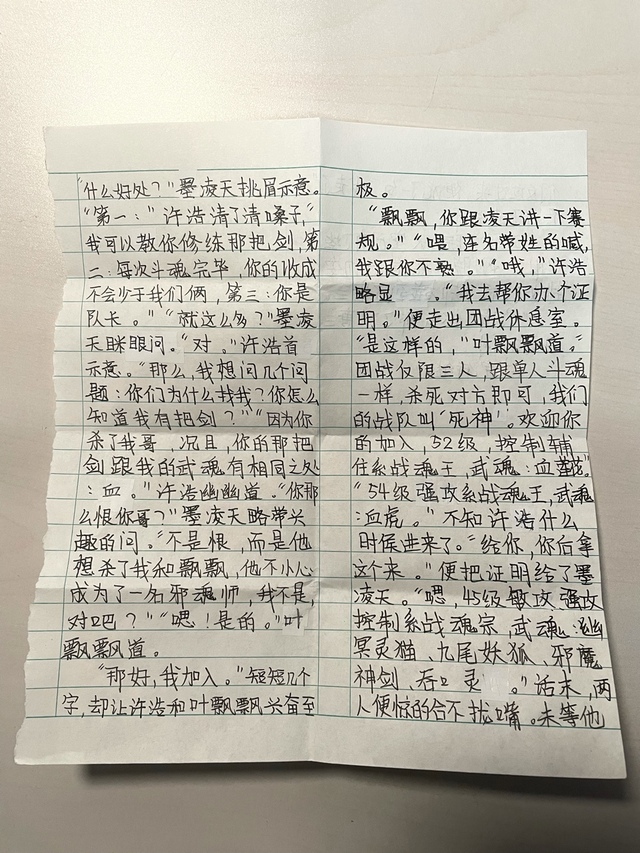 “什么好处？”墨凌天挑眉示意。
“第一：”许浩清了清嗓子，“
我可以教你修练那把剑，第
二：每次斗魂完毕，你的收成
不会少于我们俩，第三：你是
队长。”“就这么多？”墨凌
天眯眼问。“对。”许浩首
示意。“那么，我想问几个问
题：你们为什么找我？你怎么
知道我有把剑？”“因为你
杀了我哥，况且，你的那把
剑跟我的武魂有相同之处
：血。”许浩幽幽道。“你那
么恨你哥？”墨凌天略带兴
趣的问。“不是恨，而是他
想杀了我和飘飘，他不小心
成为了一名邪魂师，我不是，
对吧？”“嗯！是的。”叶
飘飘道。
“那好，我加入。”短短几个
字，却让许浩和叶飘飘兴奋至
极。
“飘飘，你跟凌天讲一下赛
规。”“喂，连名带姓的喊，
我跟你不熟。”“哦，”许浩
略显 。“我去帮你办个证
明。”便走出团战休息室。
“是这样的，”叶飘飘道。“
团战仅限三人，跟单人斗魂
一样，杀死对方即可，我们
的战队叫‘死神’。欢迎你
的加入，52级，控制辅
系战魂王，武魂：血
“54级强攻系战魂王，武魂
：血虎。”不知许浩什么
时候进来了。“给你，你后拿
这个来。”便把证明给了墨
凌天。“嗯，45级敏攻强攻
控制系战魂宗，武魂：幽
冥灵猫、九尾妖狐、邪魔
神剑 吞 灵 。”话末，两
人便惊的合不拢嘴。未等他